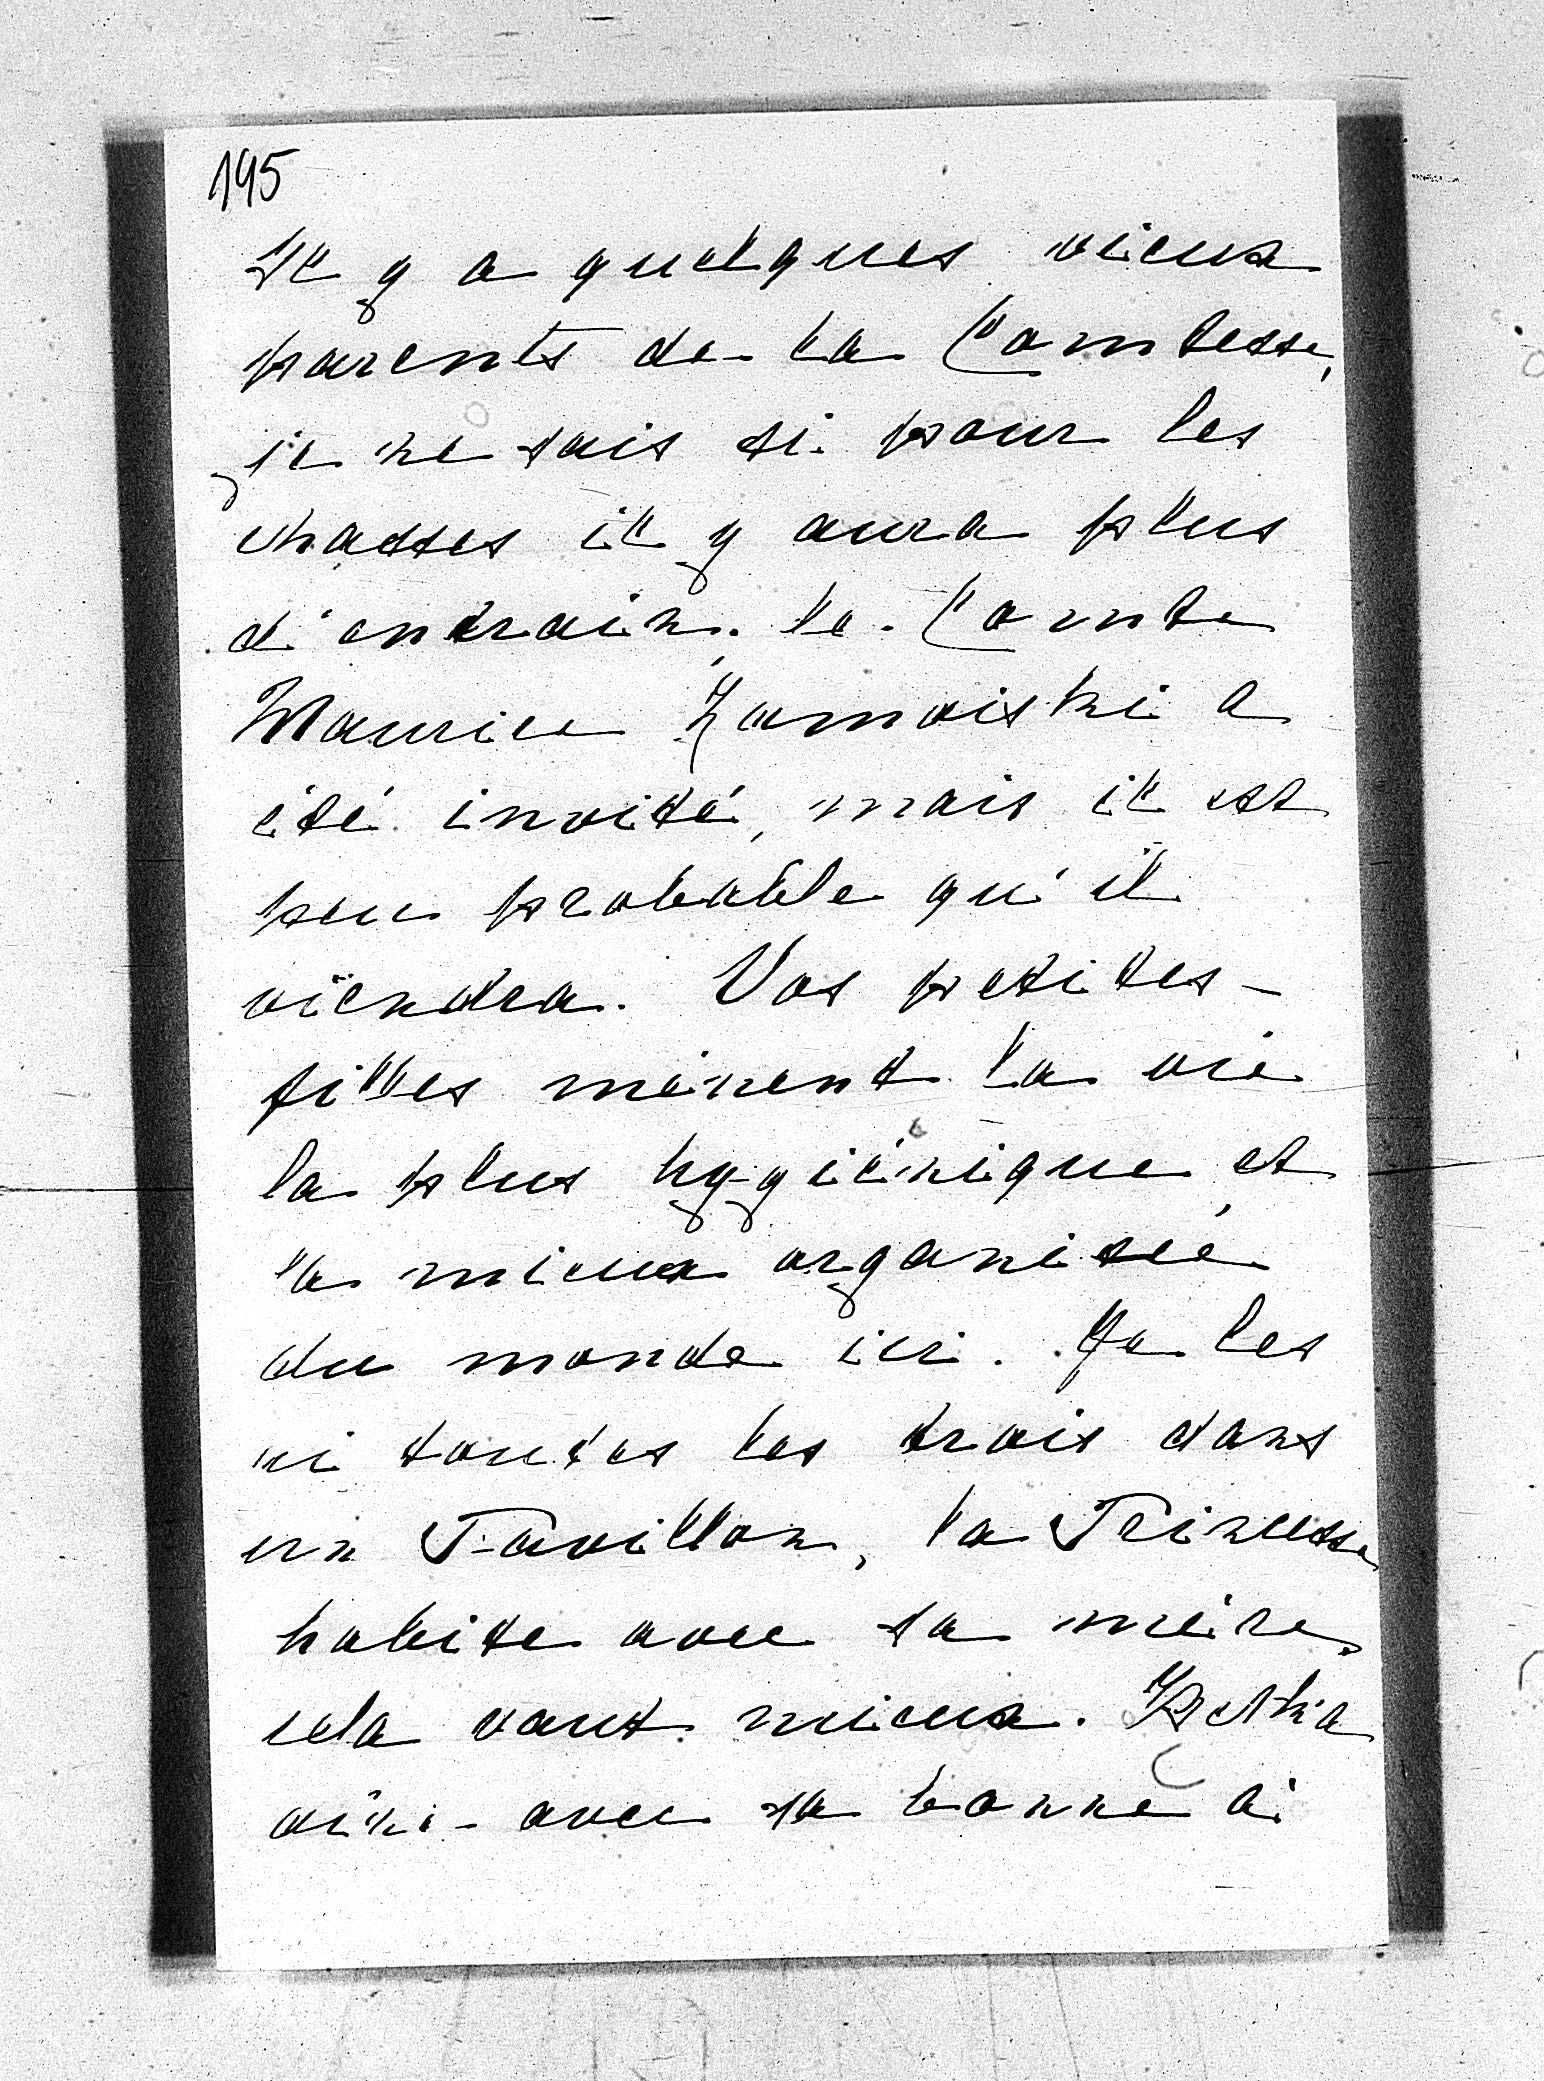 195
Il y a quelques vieux
parents de la Comtesse,
je ne sais si pour les
chasses il y aura plus
d'entrain. Le Comte
Maurice Zamoiski a
été invité, mais il est
peu probable qu'il
viendra. Vos petites-
filles mènent la vie
la plus hygiénique et
la mieux organisée
du monde ici. On les
a toutes les trois dans
un Pavillon, la Princesse
habite avec sa mère,
cela vaut mieux. Betka
dîne avec sa bonne à